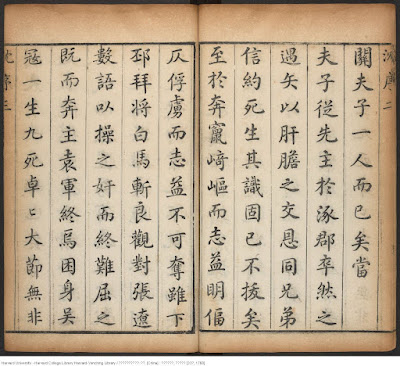 沈序二
關夫子一人而已矣當
夫子從先主於涿郡卒然之
遇矢以肝膽之交恩同兄弟
信約死生其識固已不拔矣
至於奔竄崎嶇而志益明偪
仄俘虜而志益不可奪雖下
邳拜將白馬斬良觀對張遼
數語以操之奸而終難屈之
既而奔主袁軍終焉困身吳
冠一生九死卓〻大節無非
沈序三
Harvard University - Harvard College Library Harvard-Yenching Library / ????????????? [China]. ??????, ?????